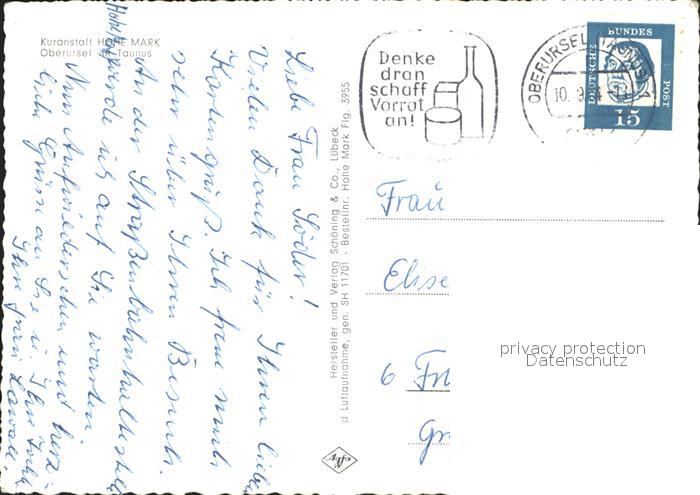 Kuranstalt HOHE MARK
Oberursel im Taunus
Liebe Frau Söder!
Vielen Dank für Ihren lieben
Kartengruß. Ich freue mich
sehr über Ihren Besuch.
An der Straßenbahnhaltestelle
Hohe Mark werde ich auf Sie warten.
Nun Aufwiedersehen und herz-
liche Grüße an Sie u. Ihre Tochter
Ihre Frau
Hersteller und Verlag Schöning & Co., Lübeck
d Luftaufnahme, gen. SH 11701 - Bestellnr. Hohe Mark Flg. 3955
Agfa
Denke
dran
schaff
Vorrat
an!
OBERURSEL (TAUNUS) 1
10. 9.
DEUTSCHE
BUNDES
POST
15
Frau
Elise
6 Fr
Gr
privacy protection
Datenschutz